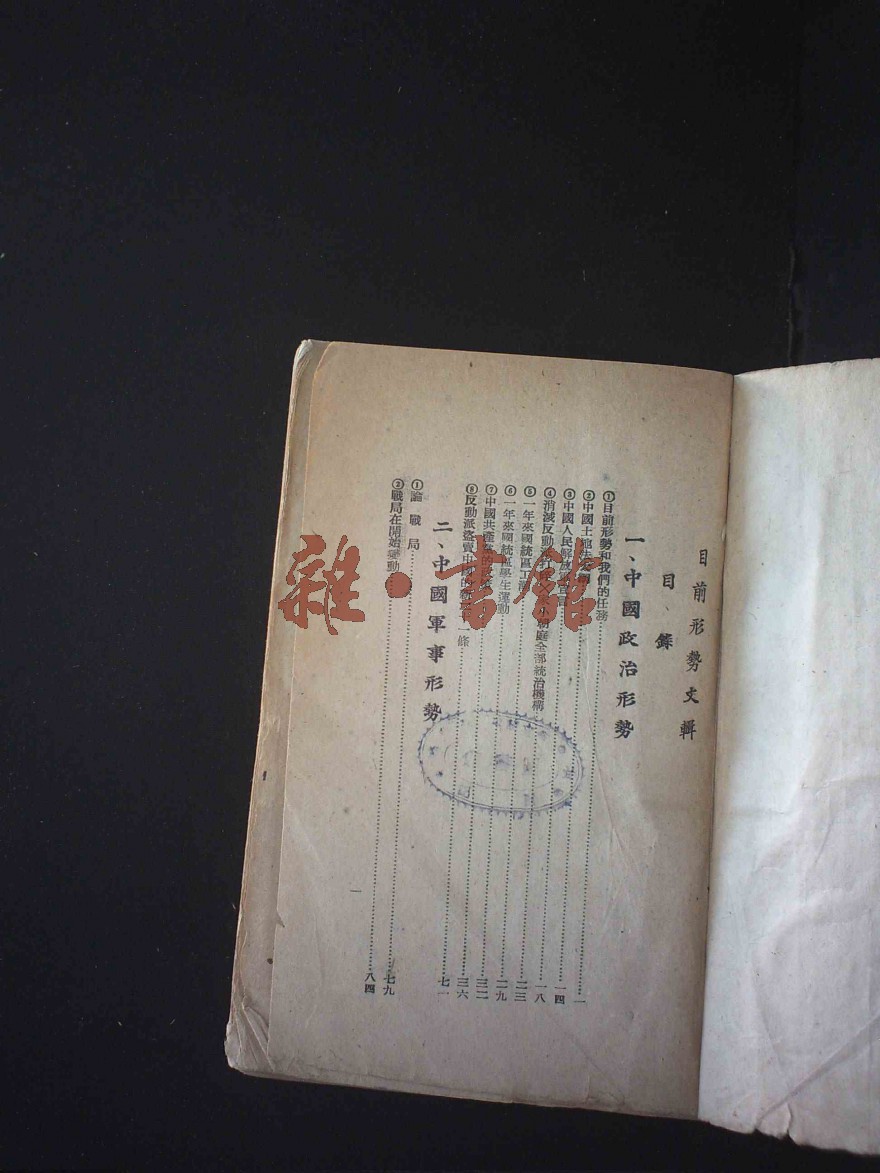 目前形勢文輯
目錄
一、中國政治形勢
①目前形勢和我們的任務……一
②中國土地法大綱……一四
③中國人民解放軍宣言……一八
④消滅反動派 小朝庭全部統治機構……二三
⑤一年來國統區工……二九
⑥一年來國統區學生運動……三二
⑦中國共產黨的……三六
⑧反動派盜賣中國的 條……七一
二、中國軍事形勢
①論戰局……七九
②戰局在開始變動……八四
一
雜·書館